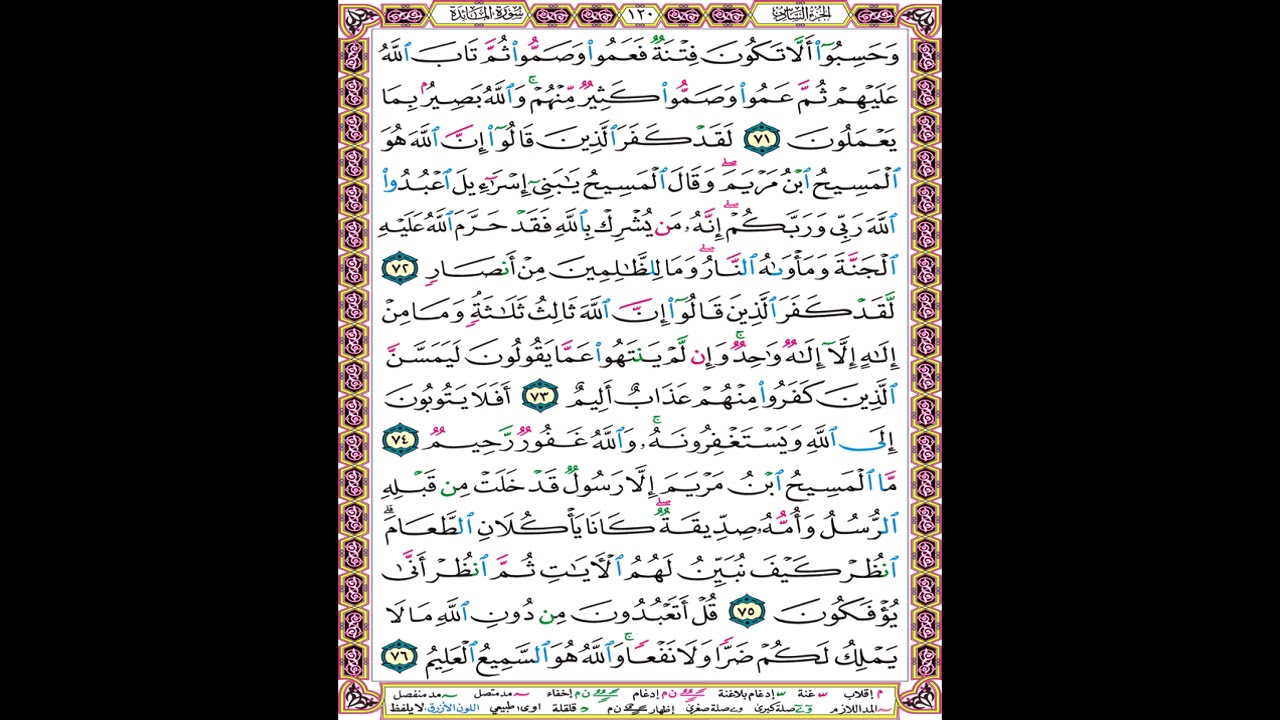 الجزء السادس ١٢٠ سورة المائدة
وَحَسِبُوٓا۟ أَلَّا تَكُونَ فِتْنَةٌ فَعَمُوا۟ وَصَمُّوا۟ ثُمَّ تَابَ ٱللَّهُ
عَلَيْهِمْ ثُمَّ عَمُوا۟ وَصَمُّوا۟ كَثِيرٌ مِّنْهُمْ ۚ وَٱللَّهُ بَصِيرٌۢ بِمَا
يَعْمَلُونَ ٧١ لَقَدْ كَفَرَ ٱلَّذِينَ قَالُوٓا۟ إِنَّ ٱللَّهَ هُوَ
ٱلْمَسِيحُ ٱبْنُ مَرْيَمَ ۖ وَقَالَ ٱلْمَسِيحُ يَٰبَنِىٓ إِسْرَٰٓءِيلَ ٱعْبُدُوا۟
ٱللَّهَ رَبِّى وَرَبَّكُمْ ۖ إِنَّهُۥ مَن يُشْرِكْ بِٱللَّهِ فَقَدْ حَرَّمَ ٱللَّهُ عَلَيْهِ
ٱلْجَنَّةَ وَمَأْوَىٰهُ ٱلنَّارُ ۖ وَمَا لِلظَّٰلِمِينَ مِنْ أَنصَارٍ ٧٢
لَّقَدْ كَفَرَ ٱلَّذِينَ قَالُوٓا۟ إِنَّ ٱللَّهَ ثَالِثُ ثَلَٰثَةٍ وَمَا مِنْ
إِلَٰهٍ إِلَّآ إِلَٰهٌ وَٰحِدٌ ۚ وَإِن لَّمْ يَنتَهُوا۟ عَمَّا يَقُولُونَ لَيَمَسَّنَّ
ٱلَّذِينَ كَفَرُوا۟ مِنْهُمْ عَذَابٌ أَلِيمٌ ٧٣ أَفَلَا يَتُوبُونَ
إِلَى ٱللَّهِ وَيَسْتَغْفِرُونَهُۥ ۚ وَٱللَّهُ غَفُورٌ رَّحِيمٌ ٧٤
مَّا ٱلْمَسِيحُ ٱبْنُ مَرْيَمَ إِلَّا رَسُولٌ قَدْ خَلَتْ مِن قَبْلِهِ
ٱلرُّسُلُ وَأُمُّهُۥ صِدِّيقَةٌ ۖ كَانَا يَأْكُلَانِ ٱلطَّعَامَ ۗ
ٱنظُرْ كَيْفَ نُبَيِّنُ لَهُمُ ٱلْءَايَٰتِ ثُمَّ ٱنظُرْ أَنَّىٰ
يُؤْفَكُونَ ٧٥ قُلْ أَتَعْبُدُونَ مِن دُونِ ٱللَّهِ مَا لَا
يَمْلِكُ لَكُمْ ضَرًّا وَلَا نَفْعًا ۚ وَٱللَّهُ هُوَ ٱلسَّمِيعُ ٱلْعَلِيمُ ٧٦
م إقلاب غنة إدغام بلاغنة ن م إدغام ن م إخفاء مد متصل مد منفصل
المد اللازم صلة كبرى صلة صغرى إظهار ن م قلقلة اوى: طبيعي اللون الأزرق: لا يلفظ